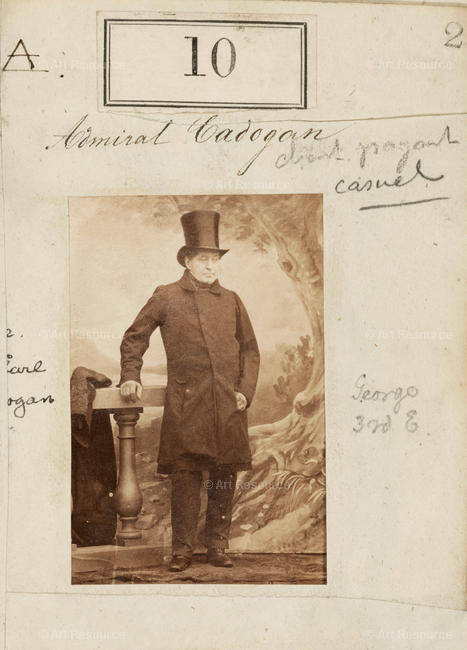 2
10
A.
Admiral Cadogan
casuel
Earl
ogan
George
3rd E
© Art Resource